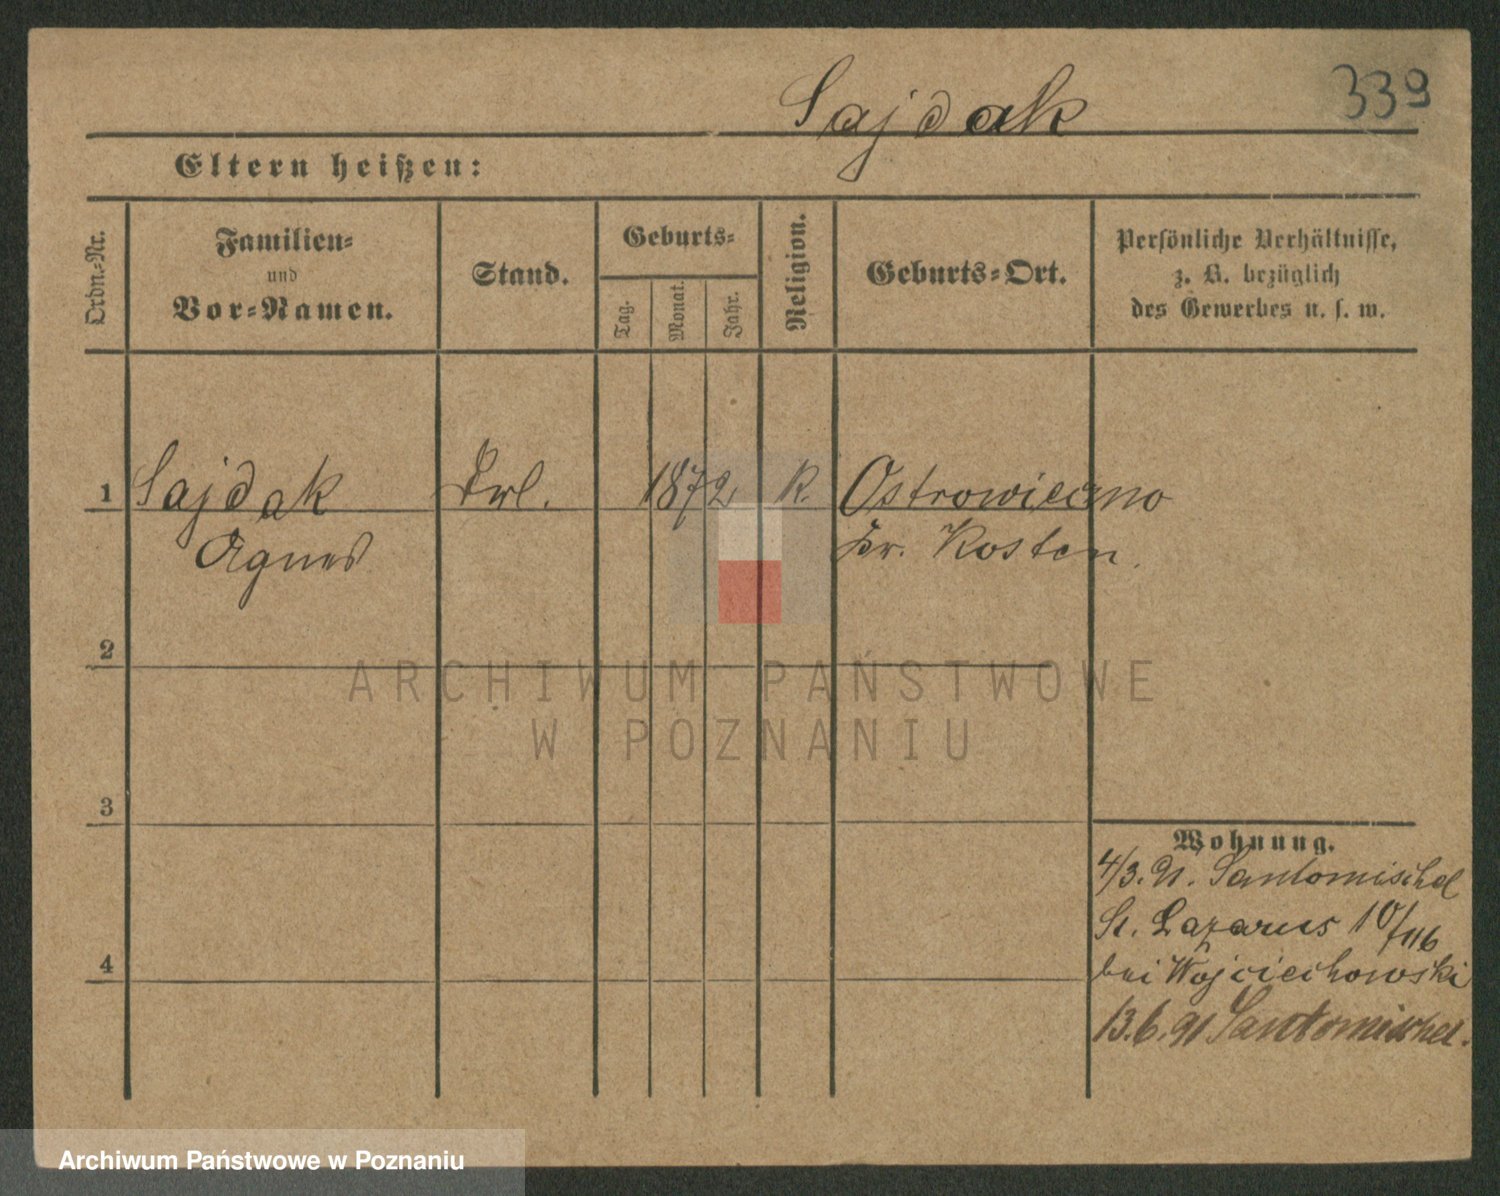 339
Sajdak
Eltern heißen:
Ordn.-Nr.
Familien-
und
Vor-Namen.
Stand.
Geburts-
Tag.
Monat.
Jahr.
Religion.
Geburts-Ort.
Persönliche Verhältnisse,
z. B. bezüglich
des Gewerbes u. s. w.
1 Sajdak Frl. 1872 K. Ostrowieczno
Agnes Kr. Kosten.
2
3
4
Wohnung.
4/3. 91. Santomischel
St. Lazarus 10/
bei Wojciechowski
13.6.91 Santomischel.
ARCHIWUM PAŃSTWOWE
W POZNANIU
Archiwum Państwowe w Poznaniu